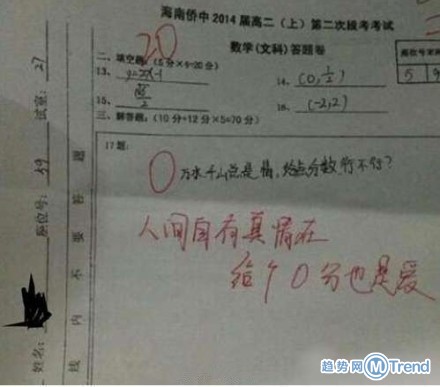 海南侨中2014届高二(上)第二次段考考试
数学(文科)答题卷
20
二、填空题:(5分×4=20分)
13、y=2x-1
14、(0,1/2)
16、(-2,2)
三、解答题:(10分+12分×5=70分)
17题:
0
万水千山总是情,给点分数行不行?
人间自有真情在
给个0分也是爱
试室:27
座位号:59
姓名:
线内不要答题
趋势网MTrend